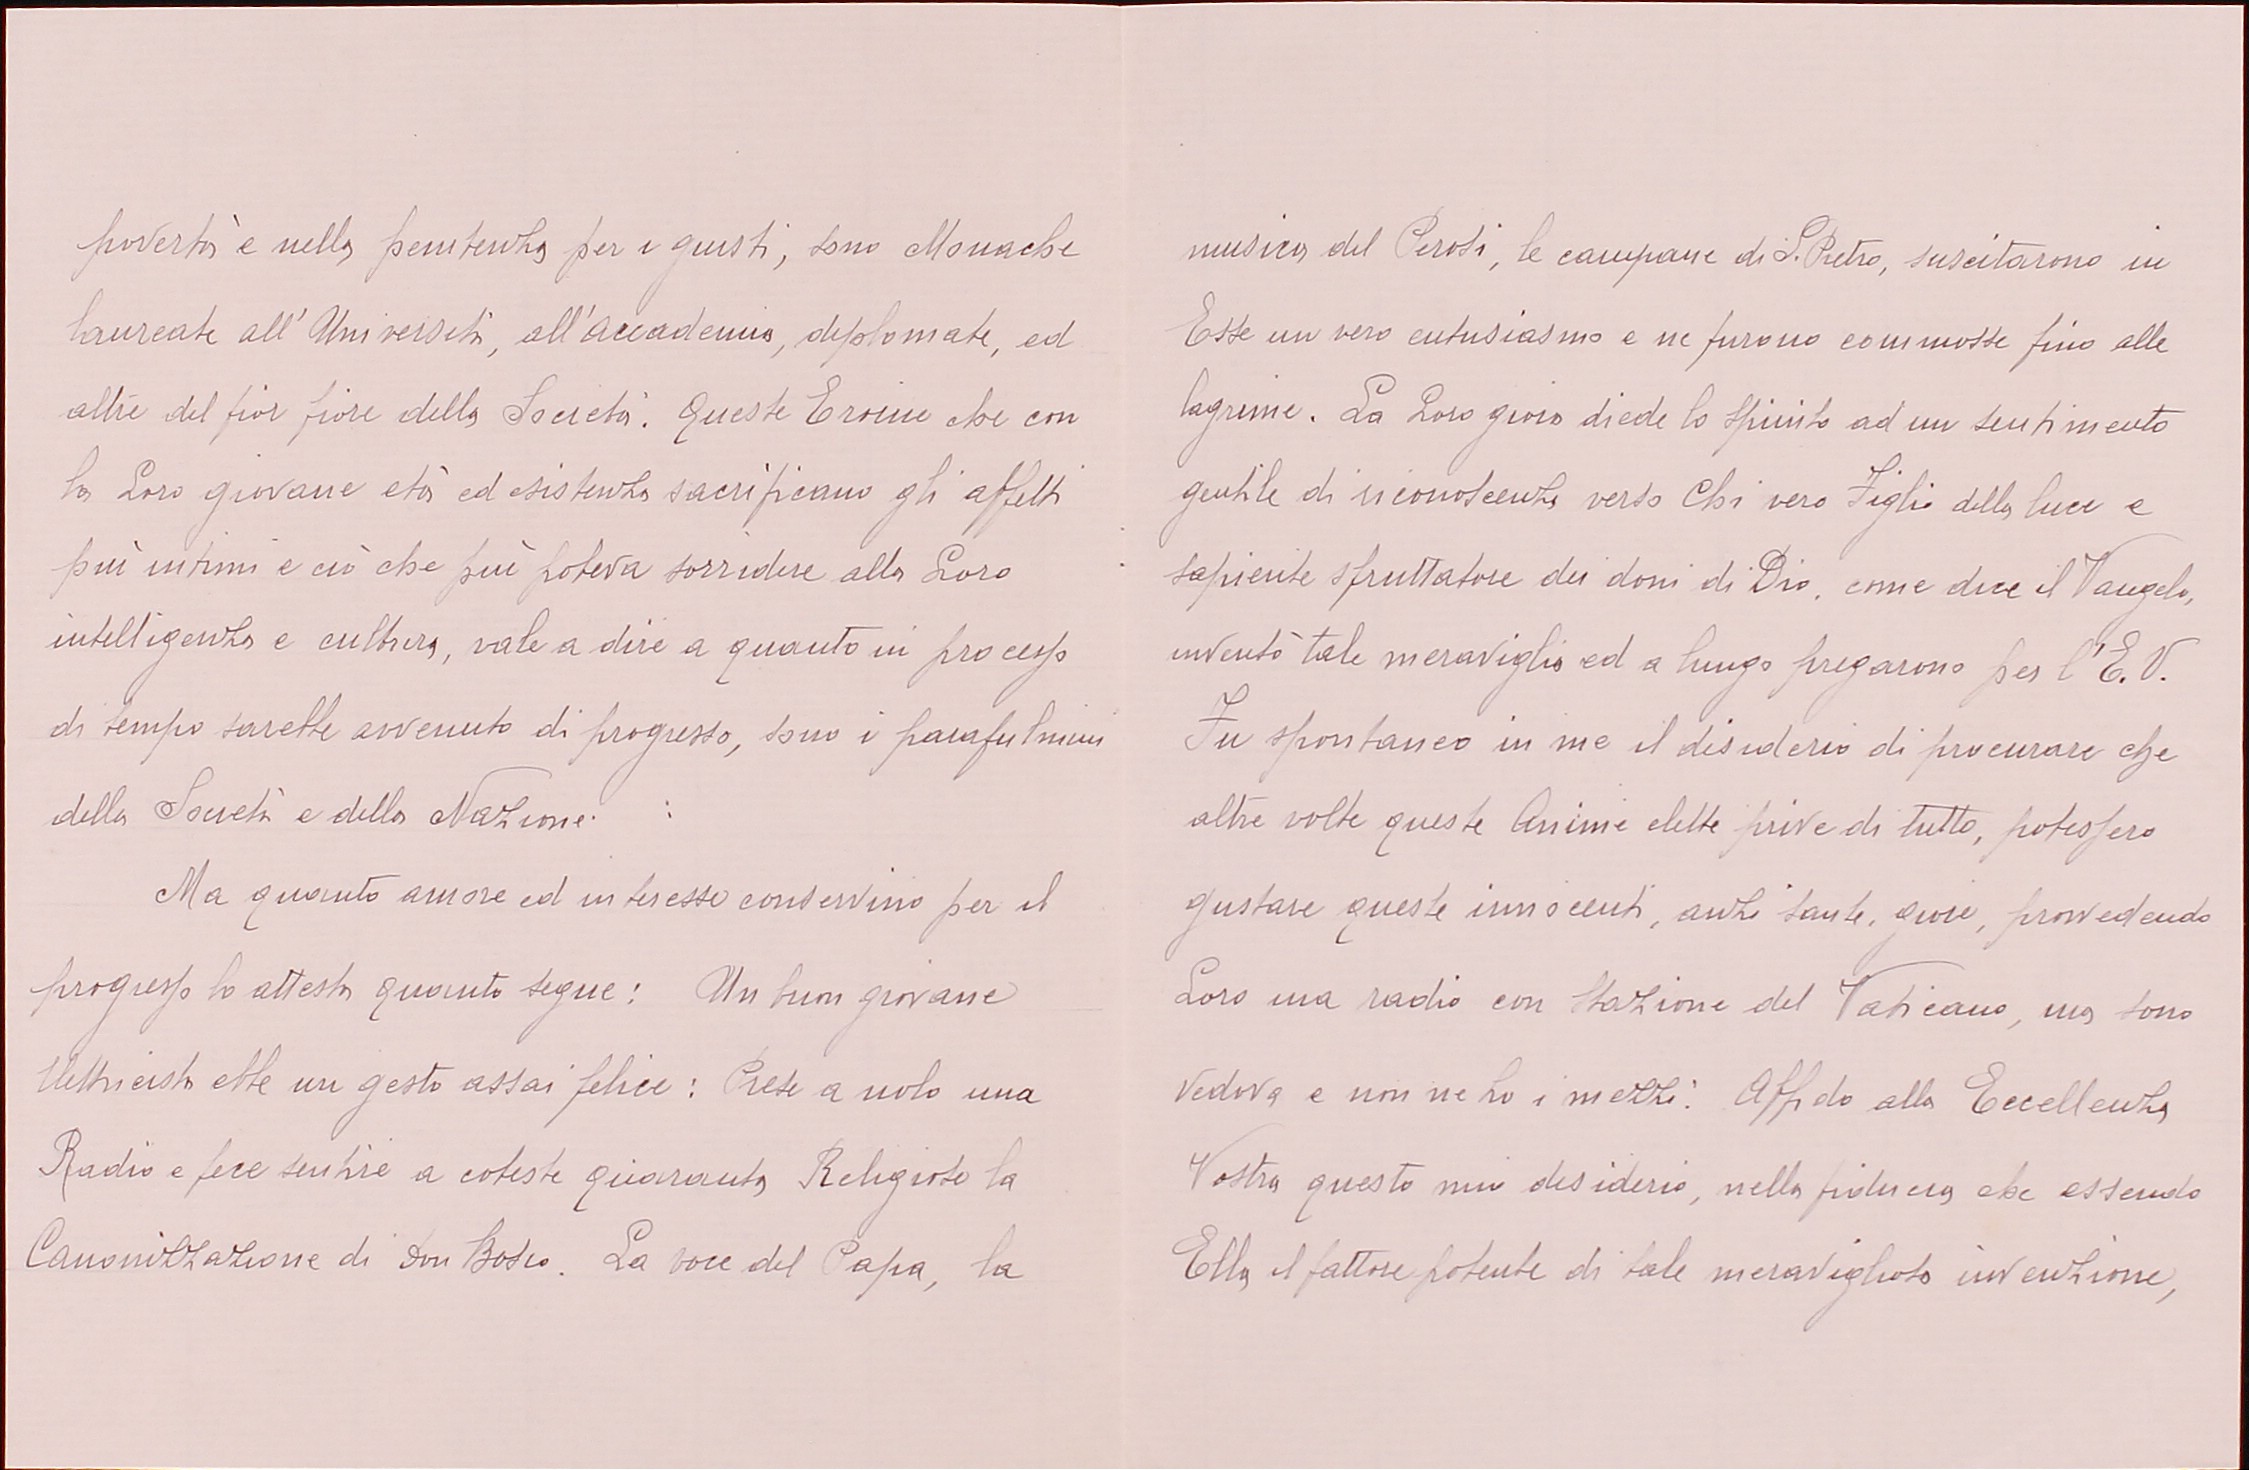 povertà e nella penitenza per i giusti, sono Monache
laureate all'Università, all'Accademia, diplomate, ed
altre del fior fiore della Società. Queste Eroine che con
la Loro giovane età ed esistenza sacrificano gli affetti
più intimi e ciò che più poteva sorridere alla Loro
intelligenza e cultura, vale a dire a quanto in processo
di tempo sarebbe avvenuto di progresso, sono i parafulmini
della Società e della Nazione.
Ma quanto amore ed interesse conservino per il
progresso lo attesta quanto segue: Un buon giovane
elettricista ebbe un gesto assai felice: Prese a nolo una
Radio e fece sentire a coteste quaranta Religiose la
Canonizzazione di Don Bosco. La voce del Papa, la
musica del Perosi, le campane di S. Pietro, suscitarono in
Esse un vero entusiasmo e ne furono commosse fino alle
lagrime. La Loro gioia diede lo spunto ad un sentimento
gentile di riconoscenza verso Chi vero Figlio della luce e
sapiente sfruttatore dei doni di Dio, come dice il Vangelo,
inventò tale meraviglia ed a lungo pregarono per l'E.V.
Fu spontaneo in me il desiderio di procurare che
altre volte queste Anime elette prive di tutto, potessero
gustare queste innocenti, anzi sante, gioie, provvedendo
Loro una radio con Stazione del Vaticano, ma sono
vedova e non ne ho i mezzi. Affido alla Eccellenza
Vostra questo mio desiderio, nella fiducia che essendo
Ella il fattore potente di tale meravigliosa invenzione,